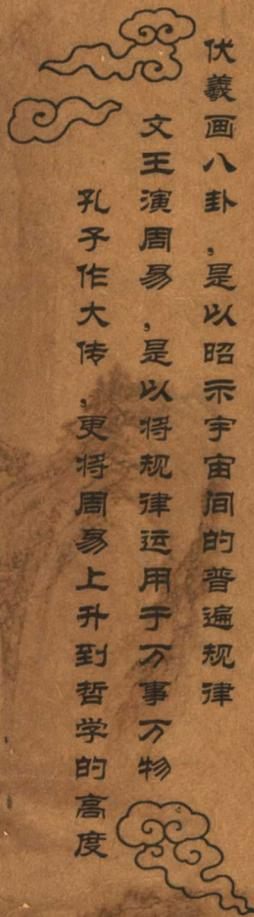 伏羲画八卦，是以昭示宇宙间的普遍规律
文王演周易，是以将规律运用于万事万物
孔子作大传，更将周易上升到哲学的高度